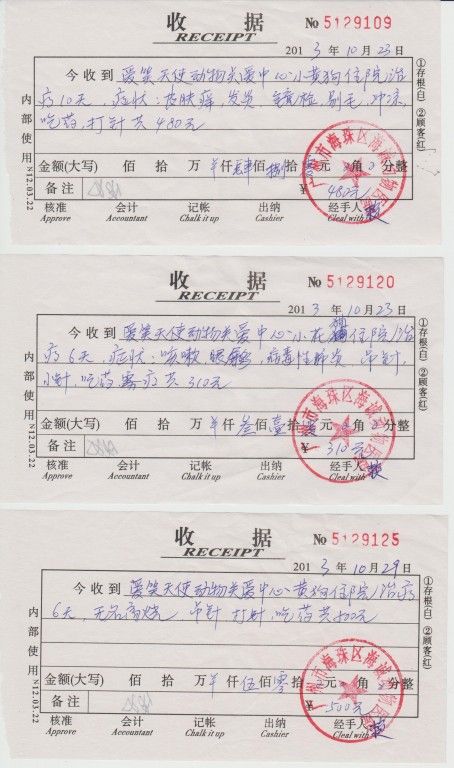 收 据
RECEIPT
No 5129109
2013 年 10 月 23 日
今收到 爱笑天使动物关爱中心小黄狗住院治
疗10天，症状：皮肤癣，发炎 镜检 剔毛 冲凉
吃药 打针共480元
金额(大写) 佰 拾 万 仟 肆佰 捌拾 元 角 分整
备注
¥ 480元
核准 会计 记帐 出纳 经手人
Approve Accountant Chalk it up Cashier Cleal with
内部使用 N12.03.22
①存根(白) ②顾客(红)
广州市海珠区海诚动物医院
收 据
RECEIPT
No 5129120
2013 年 10 月 23 日
今收到 爱笑天使动物关爱中心小花狗住院治
疗6天，症状：咳嗽 ，病毒性肺炎，吊针，
小针，吃药 雾疗共310元
金额(大写) 佰 拾 万 仟 叁佰 壹拾 元 角 分整
备注
¥ 310元
核准 会计 记帐 出纳 经手人
Approve Accountant Chalk it up Cashier Cleal with
内部使用 N12.03.22
①存根(白) ②顾客(红)
广州市海珠区海诚动物医院
收 据
RECEIPT
No 5129125
2013 年 10 月 29 日
今收到 爱笑天使动物关爱中心黄狗住院治疗
6天，无名高烧 吊针 打针，吃药共500元
金额(大写) 佰 拾 万 仟 伍佰 零拾 元 角 分整
备注
¥ 500元
核准 会计 记帐 出纳 经手人
Approve Accountant Chalk it up Cashier Cleal with
内部使用 N12.03.22
①存根(白) ②顾客(红)
广州市海珠区海诚动物医院